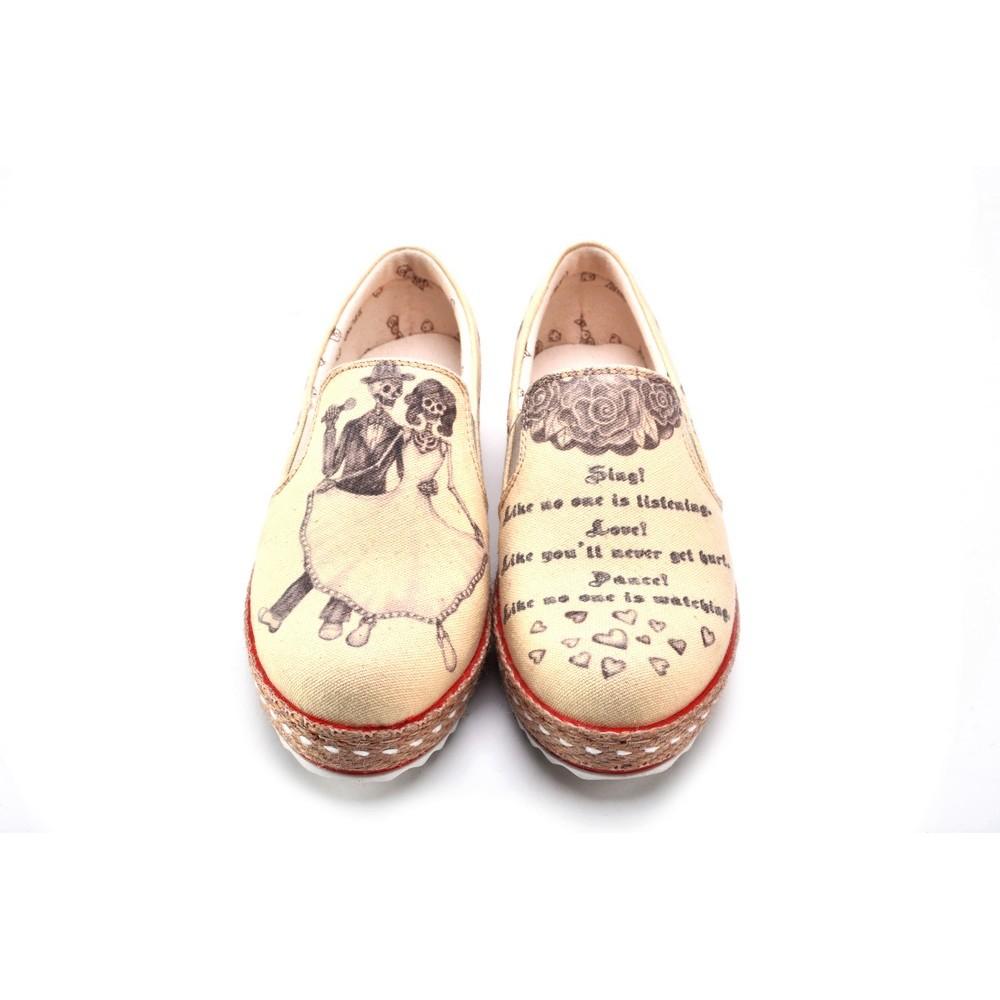 Sing!
Like no one is listening.
Love!
Like you'll never get hurt.
Dance!
Like no one is watching.